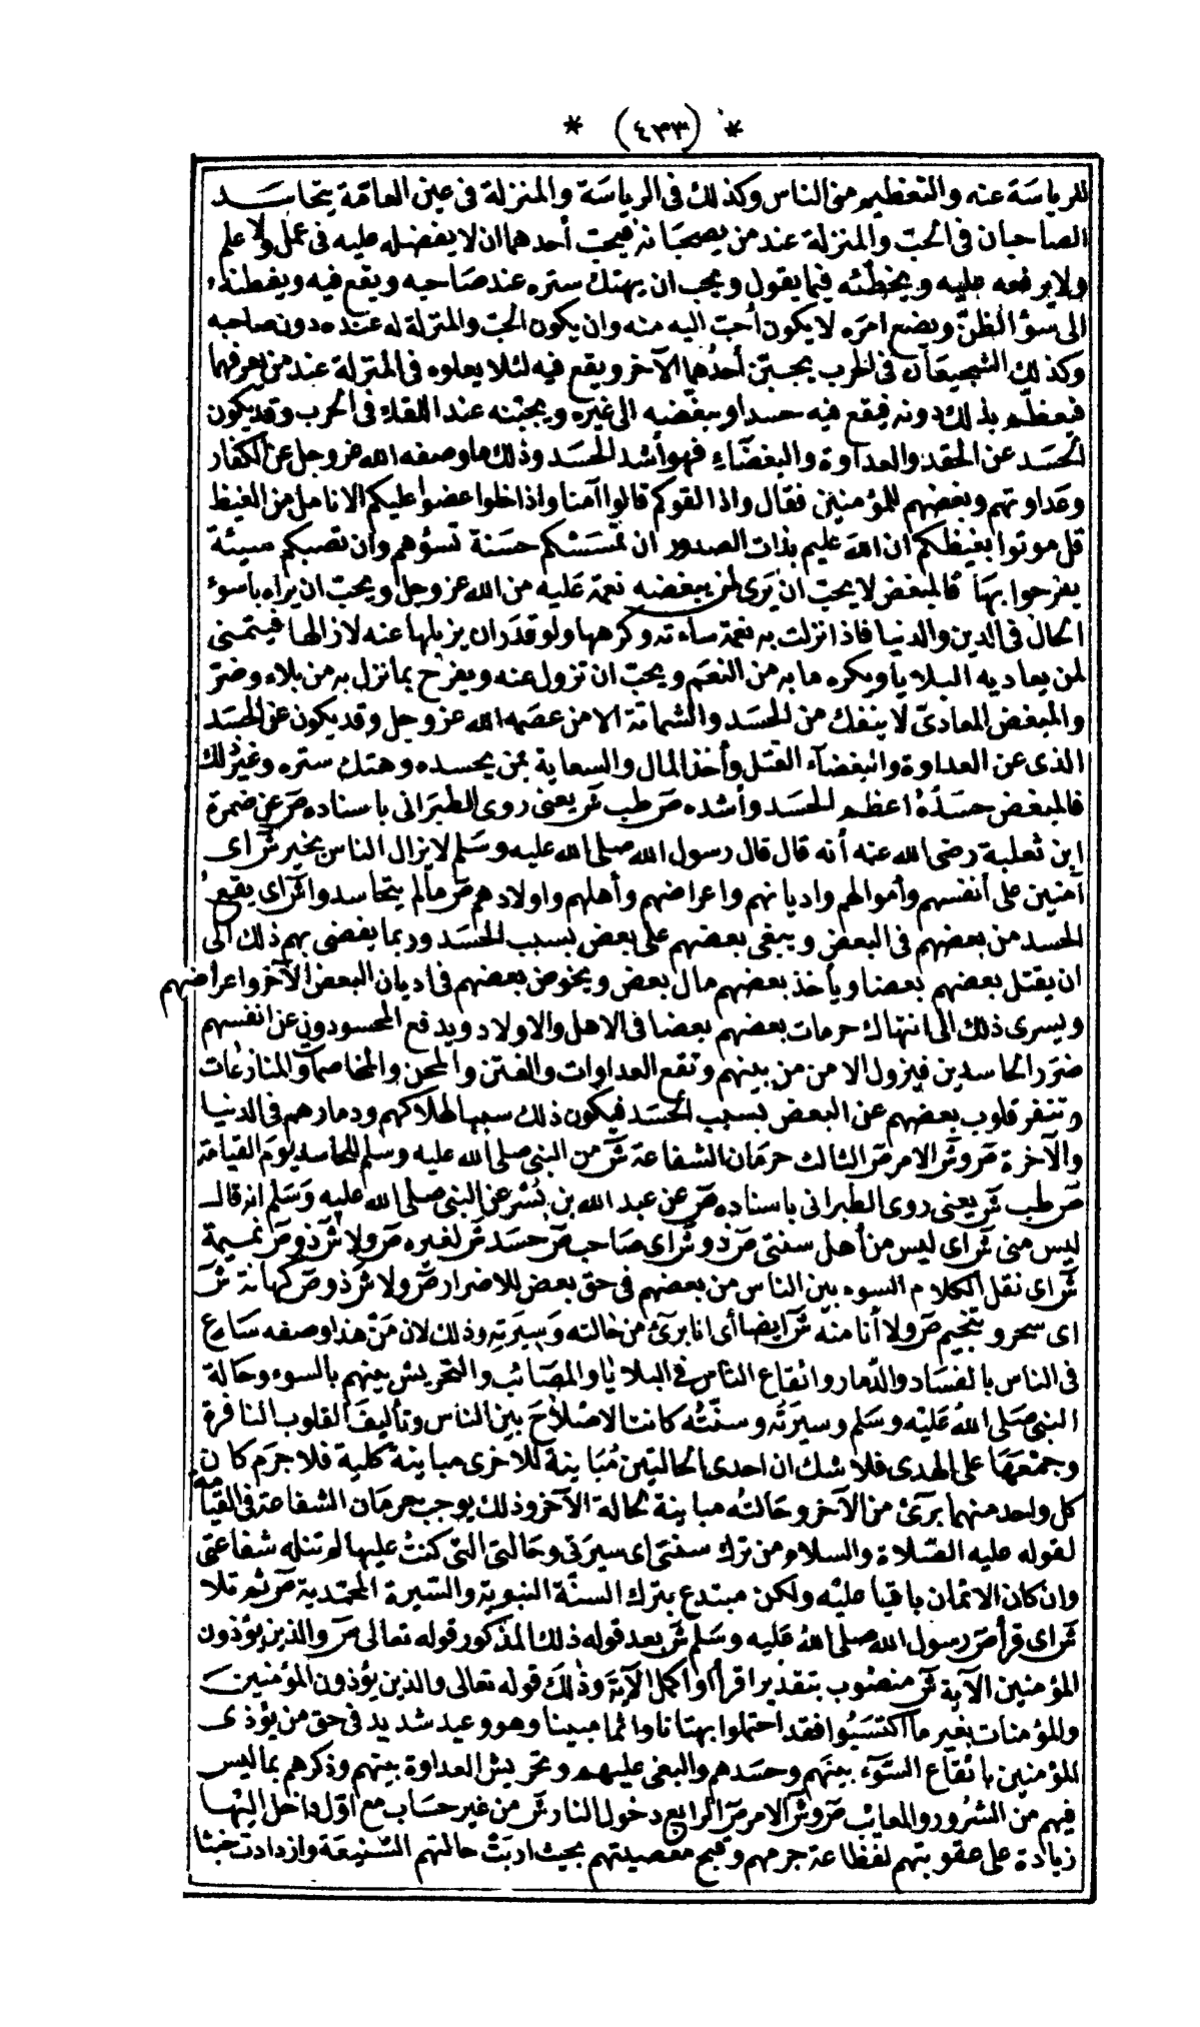 * (٤٣٣) *
للرياسة عنه والتعظيم من الناس وكذلك فى الرياسة والمنزلة فى عين العامّة يتحاسد
الصاحبان فى الحبّ والمنزلة عند من يصحبانه فيحبّ أحدهما ان لا يفضله عليه فى عمل ولا علم
ولا يرفعه عليه ويخطّئه فيما يقول ويحب ان يهتك ستره عند صاحبه ويقع فيه ويفطنه
الى سؤ الظنّ ويضع امره لا يكون أحبّ اليه منه وان يكون الحبّ والمنزلة له عنده دون صاحبه
وكذلك الشجيعان فى الحرب يجبّن أحدُهما الآخر ويقع فيه لئلا يعلوه فى المنزلة عند من يعرفهما
فيعظّم بذلك دونه فيقع فيه حسدا ويبغّضه الى غيره ويجبّنه عند اللقاء فى الحرب وقد يكون
الحسد عن الحقد والعداوة والبغضآء فهو أشد الحسد وذلك ما وصفه الله عز وجل عن الكفار
وعداوتهم وبغضهم للمؤمنين فقال واذا لقوكم قالوا آمنا واذا خلوا عضوا عليكم الانامل من الغيظ
قل موتوا بغيظكم ان الله عليم بذات الصدور ان تمسسكم حسنة تسؤهم وان تصبكم سيئة
يفرحوا بها فالمبغض لا يحبّ ان يَرى لمن يبغضه نعمة عليه من الله عز وجل ويحبّ ان يراه باسوء
الحال فى الدين والدنيا فاذا نزلت به نعمة ساءته وكرهها ولو قدَر ان يزيلها عنه لازالها فيتمنى
لمن يعاديه البلايا ويكره ما به من النعم ويحبّ ان تزول عنه ويفرح بما نزل به من بلاء وضرّ
والمبغض المعادىّ لا ينفك من الحسد والشماتة الا من عصمه الله عز وجل وقد يكون عن الحسد
الذى عن العداوة والبغضآء القتل وأخذ المال والسعاية بمن يحسده وهتك ستره وغير ذلك
فالمبغض حسَدُهُ اعظم الحسد وأشده صَ طب شَ يعنى روى الطبرانى باسناده صَ عن ضمرة
ابن ثعلبة رضى الله عنه أنه قال قال رسول الله صلى الله عليه وسلم لا يزال الناس بخير شَ اى
آمنين على أنفسهم وأموالهم واديانهم واعراضهم وأهلهم واولادهم صَ مالم يتحاسدوا شَ اى يقع
الحسد من بعضهم فى البعض ويبغى بعضهم على بعض بسبب الحسد وربما يفضى بهم ذلك الى
ان يقتل بعضهم بعضا ويأخذ بعضهم مال بعض ويخوض بعضهم فى اديان البعض الآخر واعراضهم
ويسرى ذلك الى انتهاك حرمات بعضهم بعضا فى الاهل والاولاد ويدفع المحسودون عن انفسهم
ضرر الحاسدين فيزول الامن من بينهم وتقع العداوات والفتن والمحن والمخاصمات والمنازعات
وتتنفر قلوب بعضهم عن البعض بسبب الحسد فيكون ذلك سببا لهلاكهم ودمارهم فى الدنيا
والآخرة صَ و شَ الامر صَ الثالث حرمان الشفاعة شَ من النبى صلى الله عليه وسلم للحاسد يوم القيامة
صَ طب شَ يعنى روى الطبرانى باسناده صَ عن عبد الله بن بُسْر عن النبى صلى الله عليه وسلم انه قال
ليس منى شَ اى ليس من أهل سنتى صَ ذو شَ اى صاحب صَ حسد شَ لغيره صَ ولا شَ ذو صَ نميمة
شَ اى نقل الكلام السوء بين الناس من بعضهم فى حق بعض للاضرار صَ ولا شَ ذو صَ كهانة شَ
اى سحر وتنجيم صَ ولا أنا منه شَ ايضا أى انا برئ من حالته وسيرته وذلك لان مَنْ هذا وصفه ساع
فى الناس بالفساد والدّمار وايقاع الناس فى البلايا والمصائب والتحريش بينهم بالسوء وحالة
النبى صَلى اللهُ عَليْه وسَلم وسيرَتُه وسنّتُه كانت الاصْلاحَ بين الناس وتأليفَ القلوب النافرة
وجمْعَهَا على الهدى فلا شك ان احدى الحالتين مُبَاينة للاخرى مباينة كلية فلا جرَم كان
كل واحد منهما برئ من الآخر وحالتُه مباينة لحالة الآخر وذلك يوجب حرمان الشفاعة فى القيامة
لقوله عليه الصّلاة والسلام من ترك سنتى اى سيرتى وحالتى التى كنتُ عليها لم تنله شفاعتى
وان كان الايمان باقيا عليْه ولكن مبتدع بترك السنّة النبوية والسّيرة المحمّدية صَ ثم تلا
شَ اى قرأ صَ رسول الله صلى الله عليه وسلم شَ بعد قوله ذلك المذكور قوله تعالى صَ والذين يؤذون
المؤمنين الآية شَ منصُوب بتقدير اقرأ او اكمل الآية وذلك قوله تعالى والذين يؤذون المؤمنين
والمؤمنات بغير ما اكتسَبُوا فقد احتملوا بهتانا واثما مبينا وهو وعيد شديد فى حق من يؤذى
المؤمنين بايقاع السّوْء بينهم وحسَدهم والبغى عليهم وتحريش العداوة بينهم وذكرهم بما ليس
فيهم منَ الشرُور والمعائب صَ و شَ الامر صَ الرابع دخول النار شَ من غير حسَاب مع اوّل داخل اليْها
زيادة على عقوبتهم لفظاعة جرمهم وقبح معصيتهم بحيث اربَتْ حالتهم الشنيعَة وازدادت خبثا